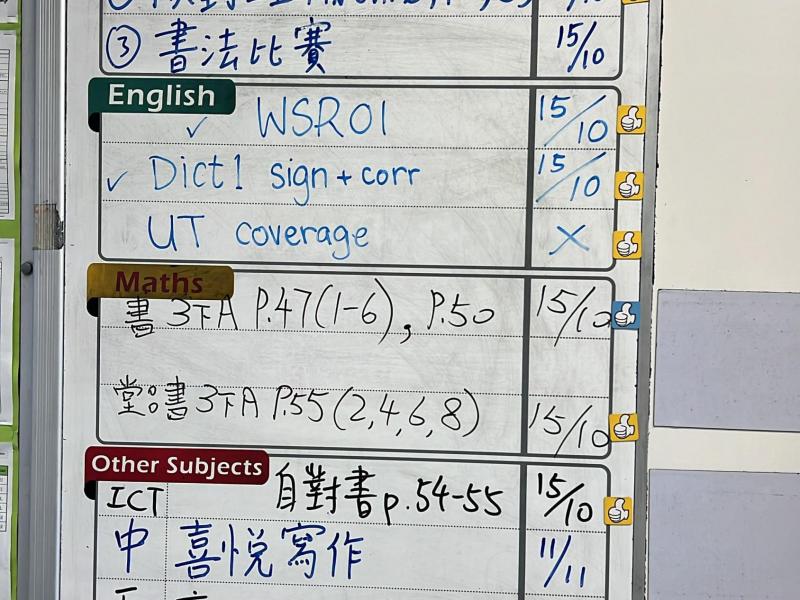 ③ 書法比賽 15/10
English
✓ WSR01 15/10
✓ Dict1 sign + corr 15/10
UT coverage ×
Maths
書 3下A P.47(1-6), P.50 15/10
堂: 書 3下A P.55 (2,4,6,8) 15/10
Other Subjects
ICT 自對書 p.54-55 15/10
中 喜悅寫作 11/11